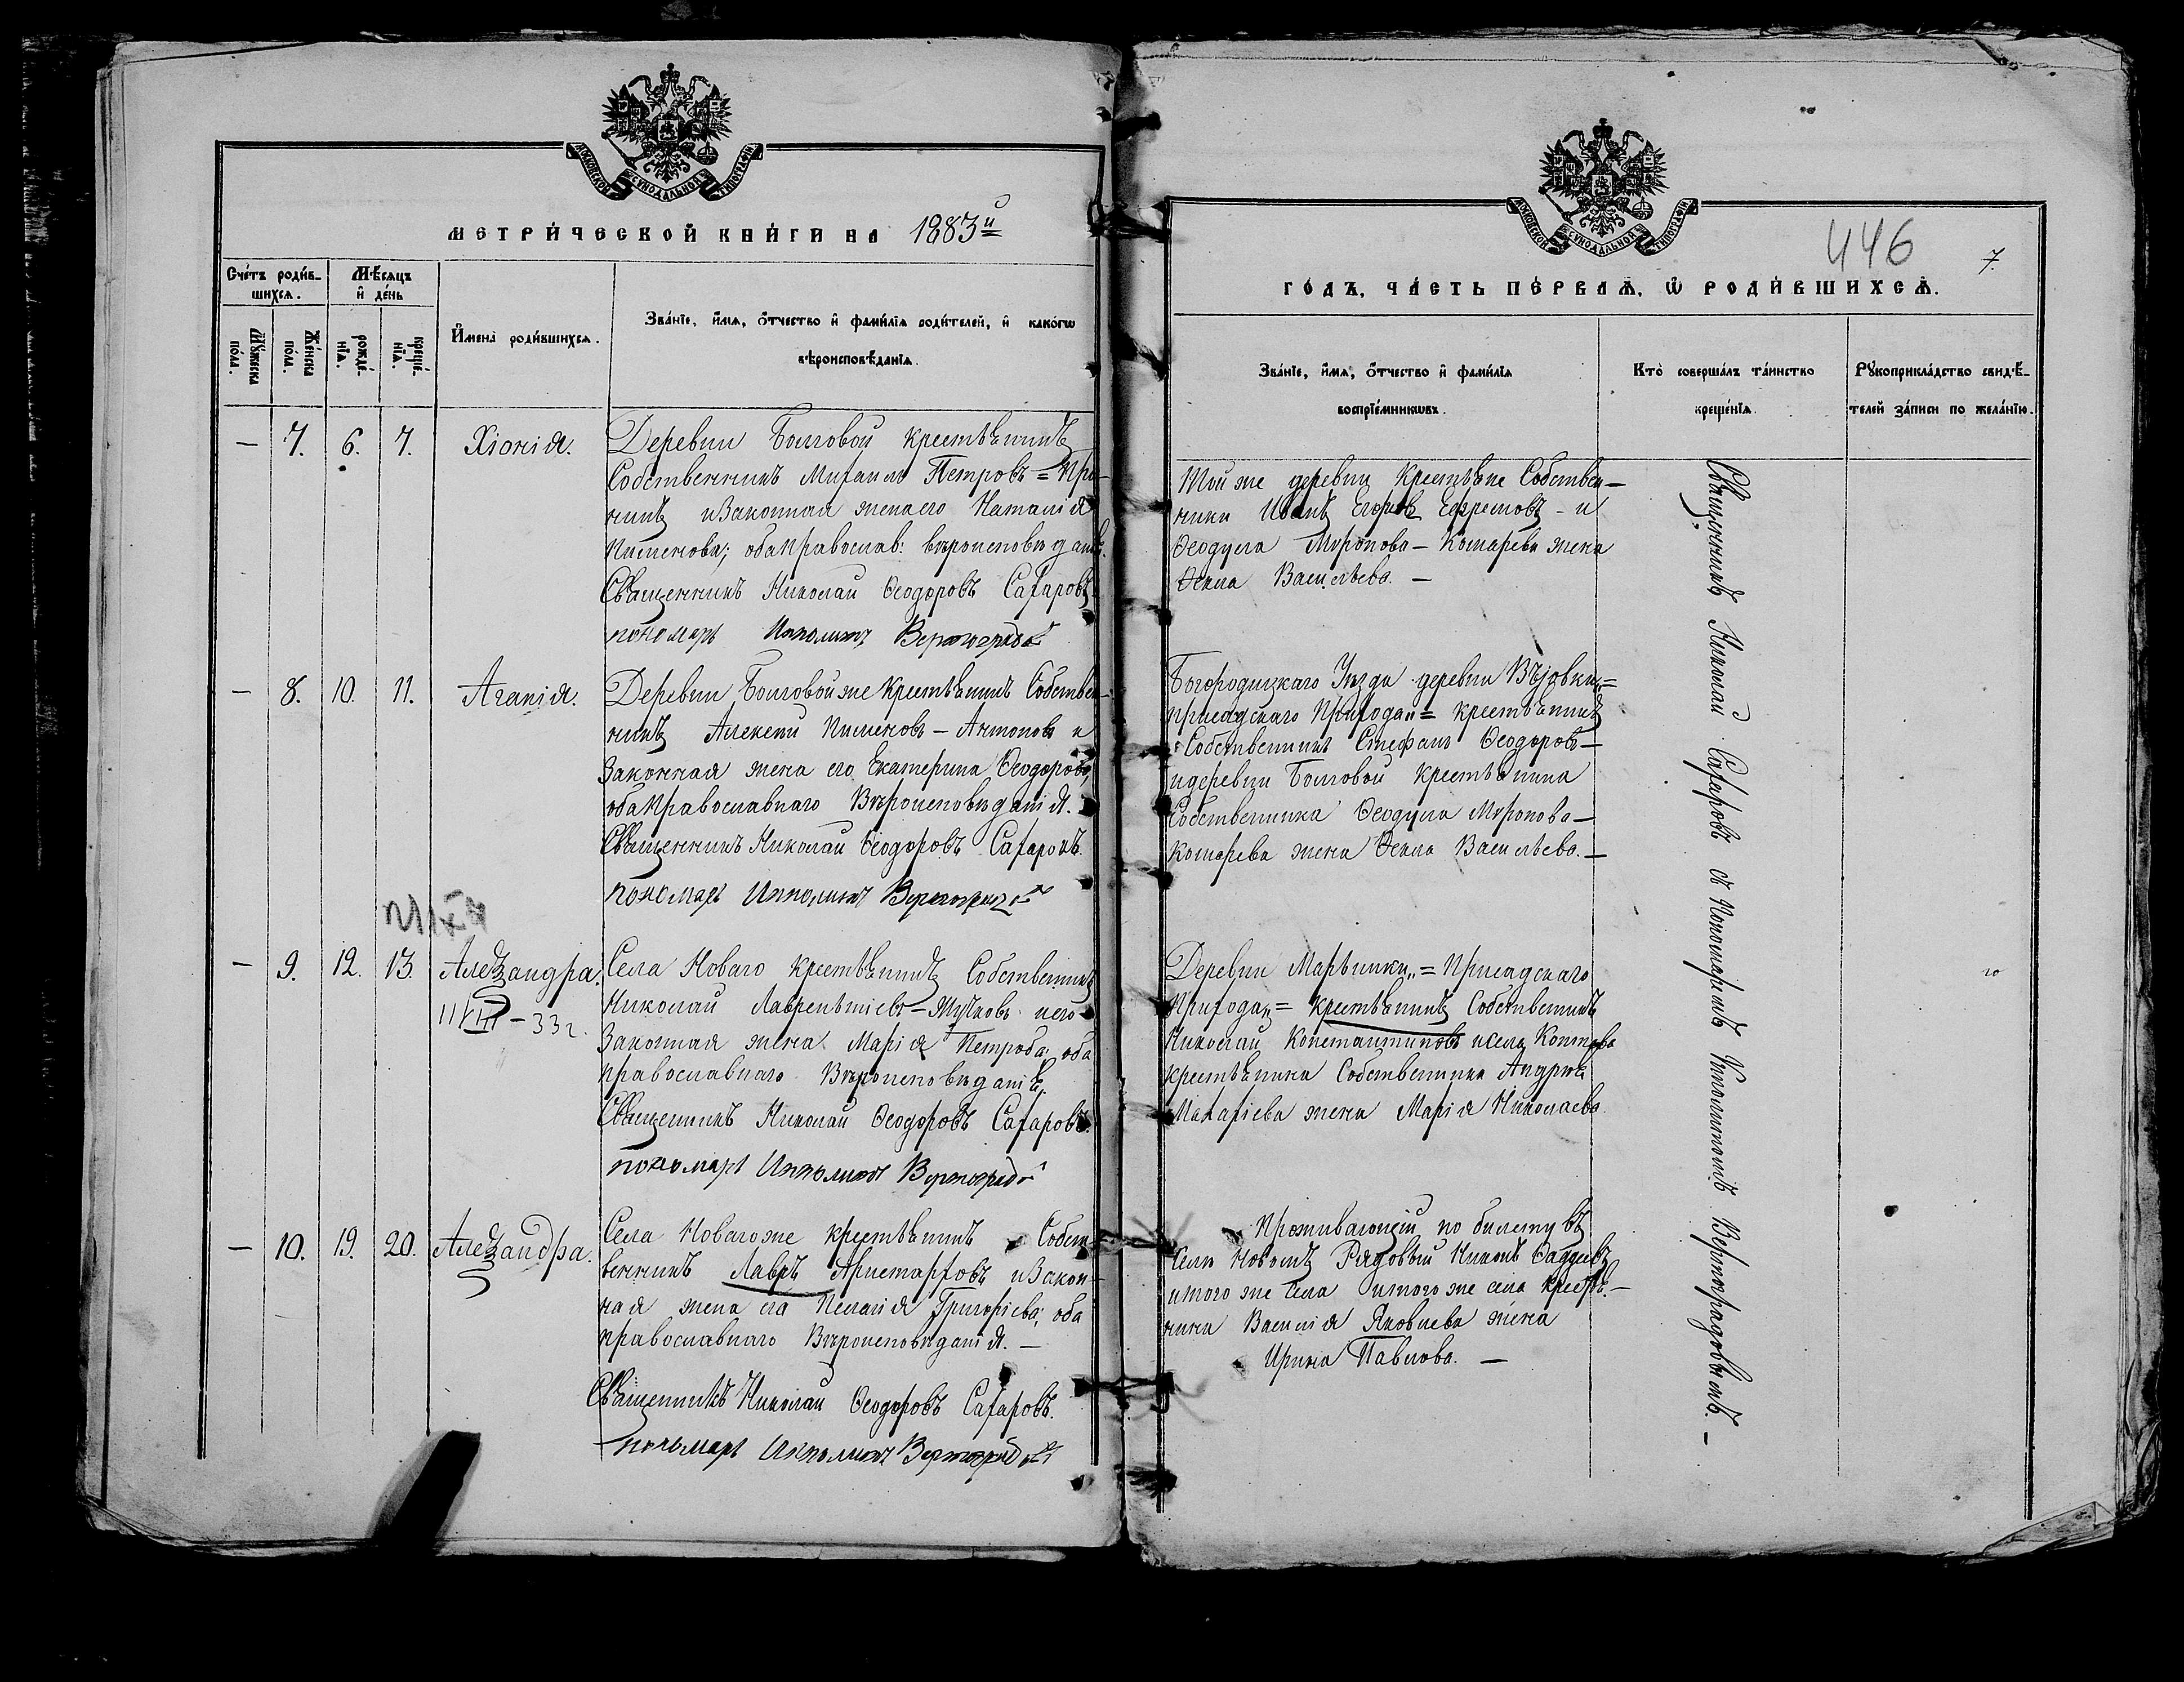 МОСКОВСКОЙ СѴНОДАЛЬНОЙ ТИПОГРАФІИ
МЕТРИЧЕСКОЙ КНИГИ НА 1883й
Счетъ родив-
шихся.
Мѣсяцъ
и день
Мужеска пола.
Женска пола.
рожде-
нія.
креще-
нія.
Имена родившихся.
Званіе, имя, отчество и фамилія родителей, и какого
вѣроисповѣданія.
— 7. 6. 7. Хіонія.
Деревни крестьянинъ
Собственникъ Михаилъ Петровъ =
и Законная жена его Наталія
Пименова; оба православ: вѣроисповѣданія.
Священникъ Николай Ѳеодоровъ Сахаровъ.
пономарь Ипполитъ Вертоградовъ
— 8. 10. 11. Агапія.
Деревни же Крестьянинъ Собствен-
никъ Алексѣй Пименовъ — Антоновъ и
Законная жена его Екатерина Ѳеодорова,
оба православнаго Вѣроисповѣданія.
Священникъ Николай Ѳеодоровъ Сахаровъ.
пономарь Ипполитъ Вертоградовъ
— 9. 12. 13. Алеѯандра.
11/VIII – 33 г.
Села Новаго крестьянинъ Собственникъ
Николай Лаврентіевъ — и его
Законная жена Марія Петрова; оба
православнаго Вѣроисповѣданія.
Священникъ Николай Ѳеодоровъ Сахаровъ.
пономарь Ипполитъ Вертоградовъ
— 10. 19. 20. Алеѯандра.
Села Новаго же крестьянинъ Собст-
венникъ Лавръ Аристарховъ и Закон-
ная жена его Пелагія Григоріева; оба
православнаго Вѣроисповѣданія. —
Священникъ Николай Ѳеодоровъ Сахаровъ.
пономарь Ипполитъ Вертоградовъ
МОСКОВСКОЙ СѴНОДАЛЬНОЙ ТИПОГРАФІИ
446
7.
ГОДЪ, ЧАСТЬ ПЕРВАЯ, Ѡ РОДИВШИХСЯ.
Званіе, имя, отчество и фамилія
воспріемниковъ.
Кто совершалъ таинство
крещенія.
Рукоприкладство свидѣ-
телей записи по желанію.
Той же деревни Крестьяне Собствен-
ники Иванъ Егоровъ Ефремовъ – и
Ѳеодула Миронова – Комарева жена
Ѳекла Васильева. —
Богородицкаго Уѣзда деревни
Прихода „= крестьянинъ
Собственникъ Стефанъ Ѳеодоровъ —
и деревни крестьянина
Собственника Ѳеодула Миронова —
Комарева жена Ѳекла Васильева. —
Деревни Марьинки „=
Прихода „= крестьянинъ Собственникъ
Николай Константиновъ и села
крестьянина Собственника Андрея
Макаріева жена Марія Николаева.
Проживающій по билету въ
Селѣ Новомъ Рядовый
и того же села и того же села крестья-
нина Василія Яковлева жена
Ирина Павлова. —
Священникъ Николай Сахаровъ съ Пономаремъ Ипполитомъ Вертоградовымъ. —